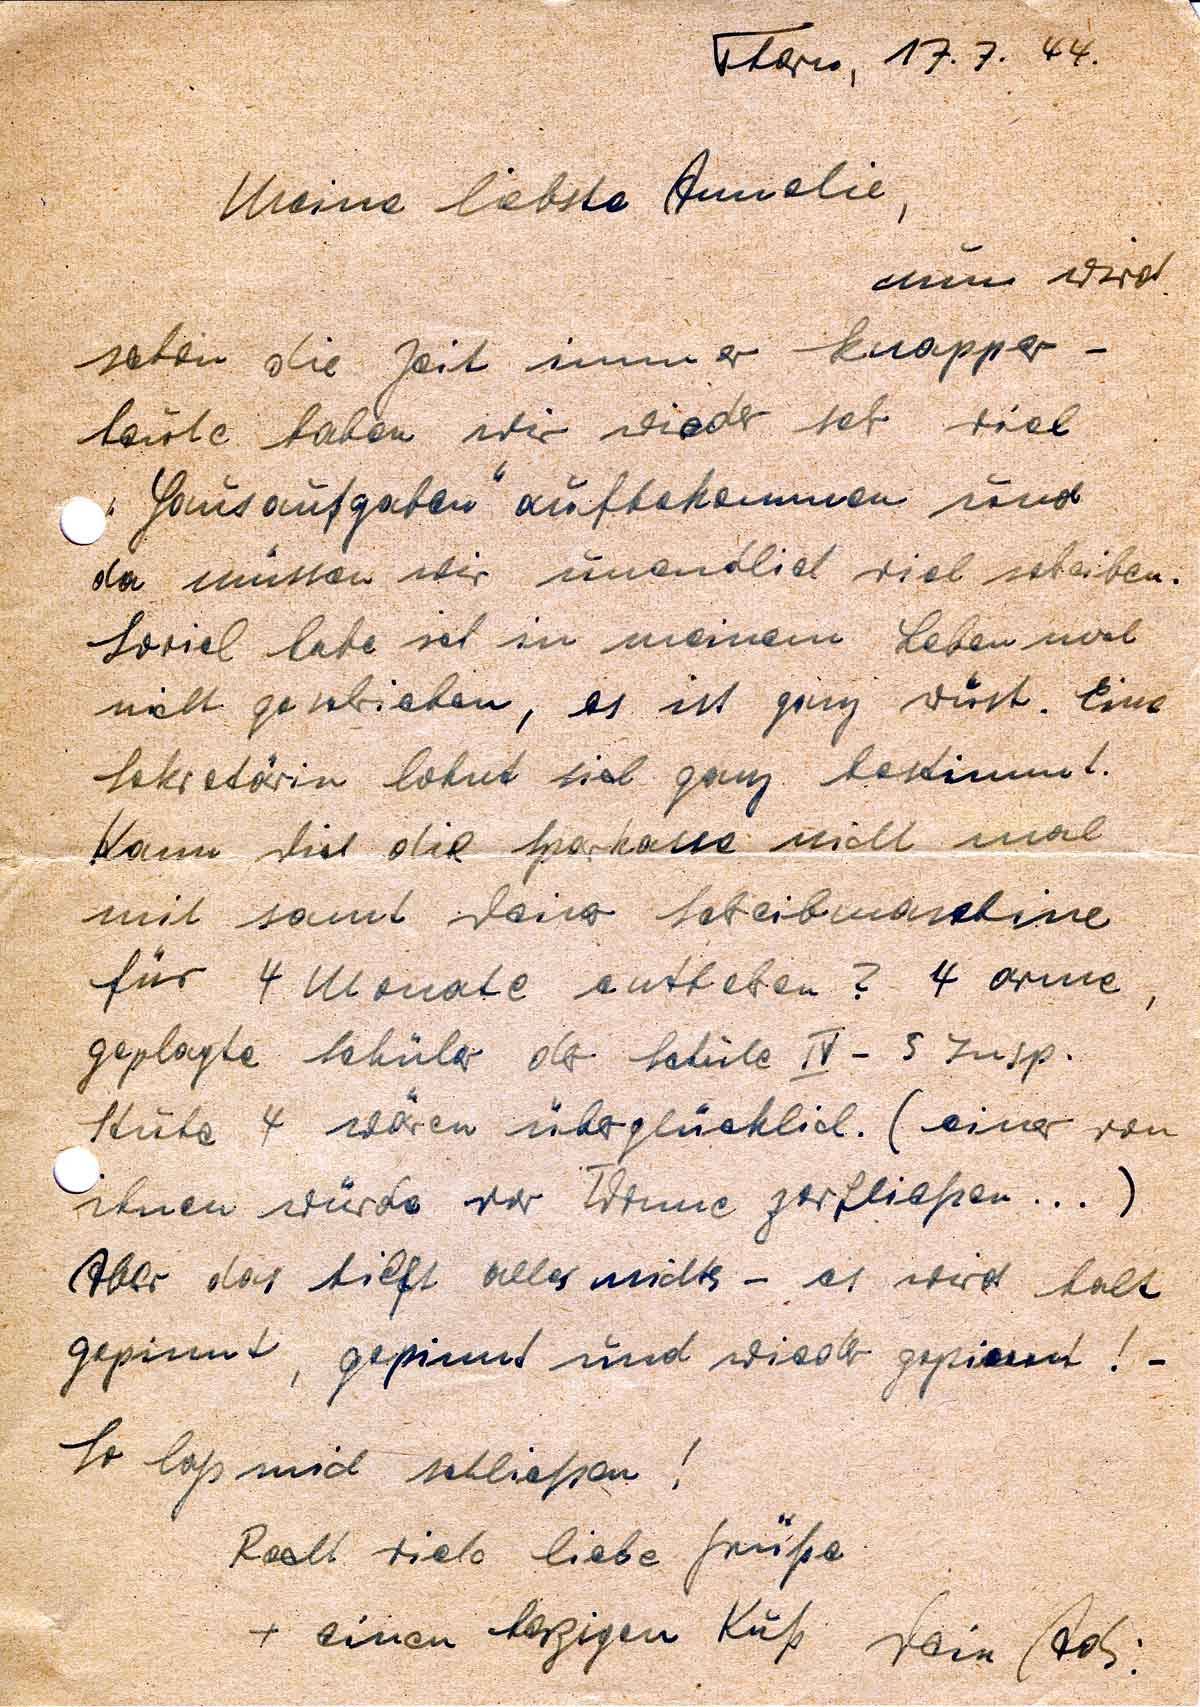 Thorn, 17.7.44.
Meine liebste Annelie,
nun wird
schon die Zeit immer knapper -
heute haben wir wieder sehr viel
"Hausaufgaben" aufbekommen und
da müssen wir unendlich viel schreiben.
Soviel habe ich in meinem Leben noch
nicht geschrieben, es ist ganz wüst. Eine
Sekretärin lohnt sich ganz bestimmt.
Kann Dich die Sparkasse nicht mal
mit samt Deiner Schreibmaschine
für 4 Monate entbehren? 4 arme,
geplagte Schüler der Schule IV - 5 Insp.
Stube 4 wären überglücklich. (einer von
ihnen würde vor Wonne zerfließen...)
Aber das hilft alles nichts - es wird halt
gepinnt, gepinnt und wieder gepinnt! -
So laß mich schließen!
Recht viele liebe Grüße
+ einen herzigen Kuß Dein